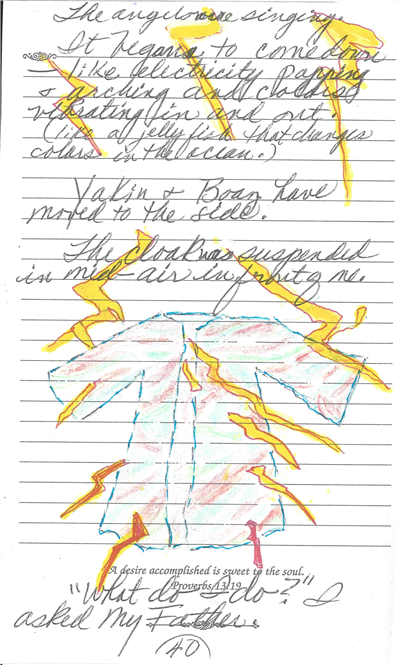 The angels were singing.
It began to come down
like electricity popping
& arching and colors
vibrating in and out.
(like a jelly fish that changes
colors in the ocean.)
Yakin & Boaz have
moved to the side.
The cloak was suspended
in mid-air in front of me.
A desire accomplished is sweet to the soul.
Proverbs 13:19
"What do I do?" I
asked My Father.
40